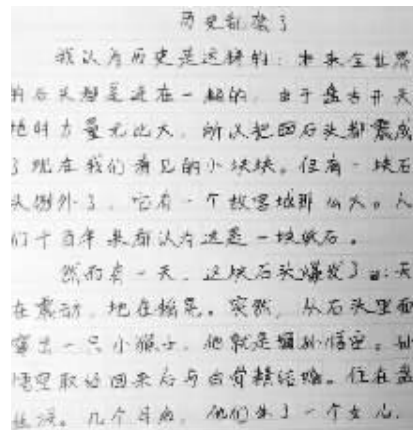 历史乱套了
我认为历史是这样的：本来全世界
的石头都是连在一起的，由于盘古开天
地时力量无比大，所以把石头都震成
了现在我们看见的小块块。但有一块石
头例外了，它有一个故宫城那么大。人
们千百年来都认为这是一块破石。
然而有一天，这块石头爆发了：天
在震动，地在摇晃。突然，从石头里面
窜出一只小猴子，他就是孙悟空。孙
悟空取经回来后与白骨精结婚。住在盘
丝洞。几个月后，他们生了一个女儿，